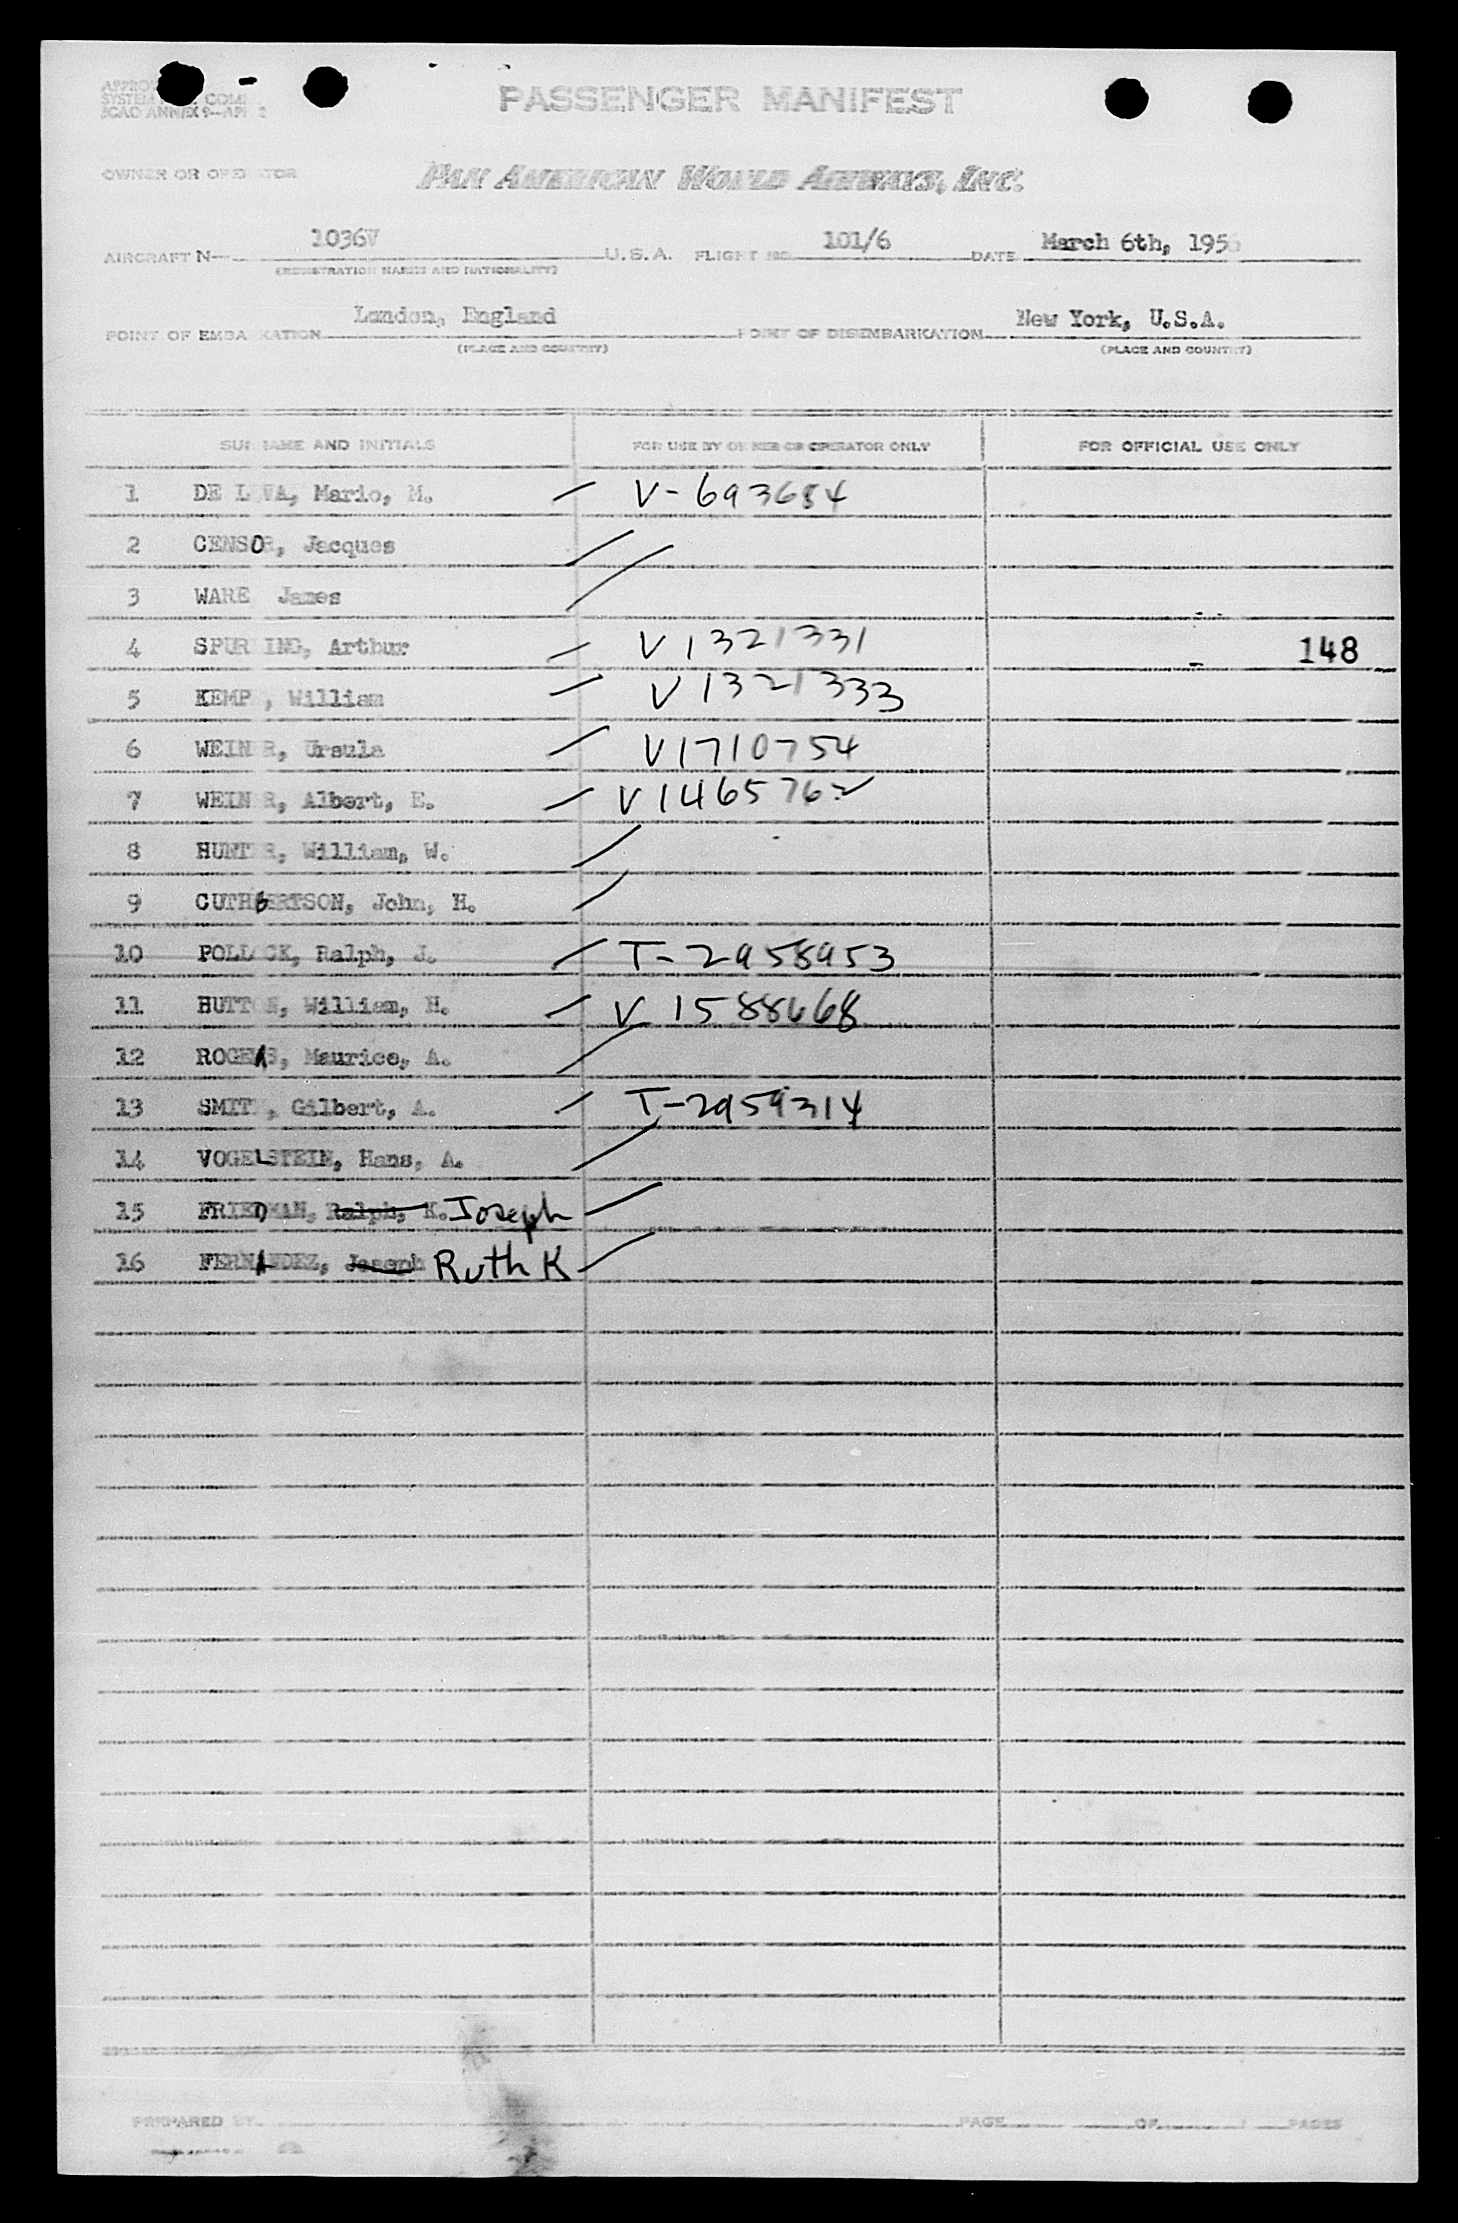 PASSENGER MANIFEST
OWNER OR OPERATOR PAN AMERICAN WORLD AIRWAYS, INC.
AIRCRAFT N— 1036V U.S.A. FLIGHT NO. 101/6 DATE March 6th, 195
(REGISTRATION MARKS AND NATIONALITY)
POINT OF EMBARKATION London, England POINT OF DISEMBARKATION New York, U.S.A.
(PLACE AND COUNTRY) (PLACE AND COUNTRY)
SURNAME AND INITIALS FOR USE BY OWNER OR OPERATOR ONLY FOR OFFICIAL USE ONLY
1 DE L VA, Mario, M. V-693684
2 CENSOR, Jacques
3 WARE James
4 SPUR ING, Arthur V1321331 148
5 KEMP , William V1321333
6 WEIN R, Ursula V1710754
7 WEIN R, Albert, E. V1465762
8 HUNTER, William, W.
9 CUTHBERTSON, John, H.
10 POLL CK, Ralph, J. T-2958953
11 HUTTON, William, H. V 1588668
12 ROGERS, Maurice, A.
13 SMITH, Gilbert, A. T-2959314
14 VOGELSTEIN, Hans, A.
15 FRIEDMAN, Ralph, K. Joseph
16 FERNANDEZ, Joseph Ruth K
PREPARED BY PAGE OF PAGES